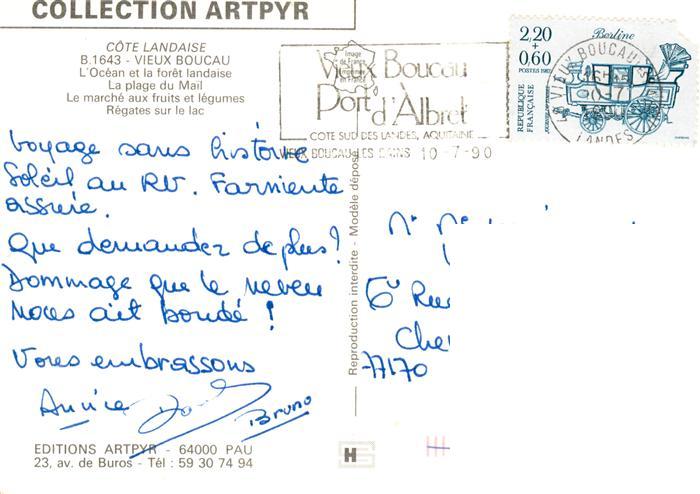 COLLECTION ARTPYR
CÔTE LANDAISE
B.1643 - VIEUX BOUCAU
L'Océan et la forêt landaise
La plage du Maïl
Le marché aux fruits et légumes
Régates sur le lac
Image de France
Imprimée en France
Vieux Boucau
Port d'Albret
COTE SUD DES LANDES, AQUITAINE
VIEUX BOUCAU LES BAINS 10-7-90
2,20
+
0,60
Berline
POSTES 1987
REPUBLIQUE FRANÇAISE
VIEUX BOUCAU
LANDES
Voyage sans histoire
Soleil au RV. Farniente
assurée.
Que demandez de plus?
Dommage que le neveu
nous ait boudé!
Vous embrassons
Annie
Bruno
Reproduction interdite - Modèle déposé
6 Rue
Che
77170
EDITIONS ARTPYR - 64000 PAU
23, av. de Buros - Tél : 59 30 74 94
H